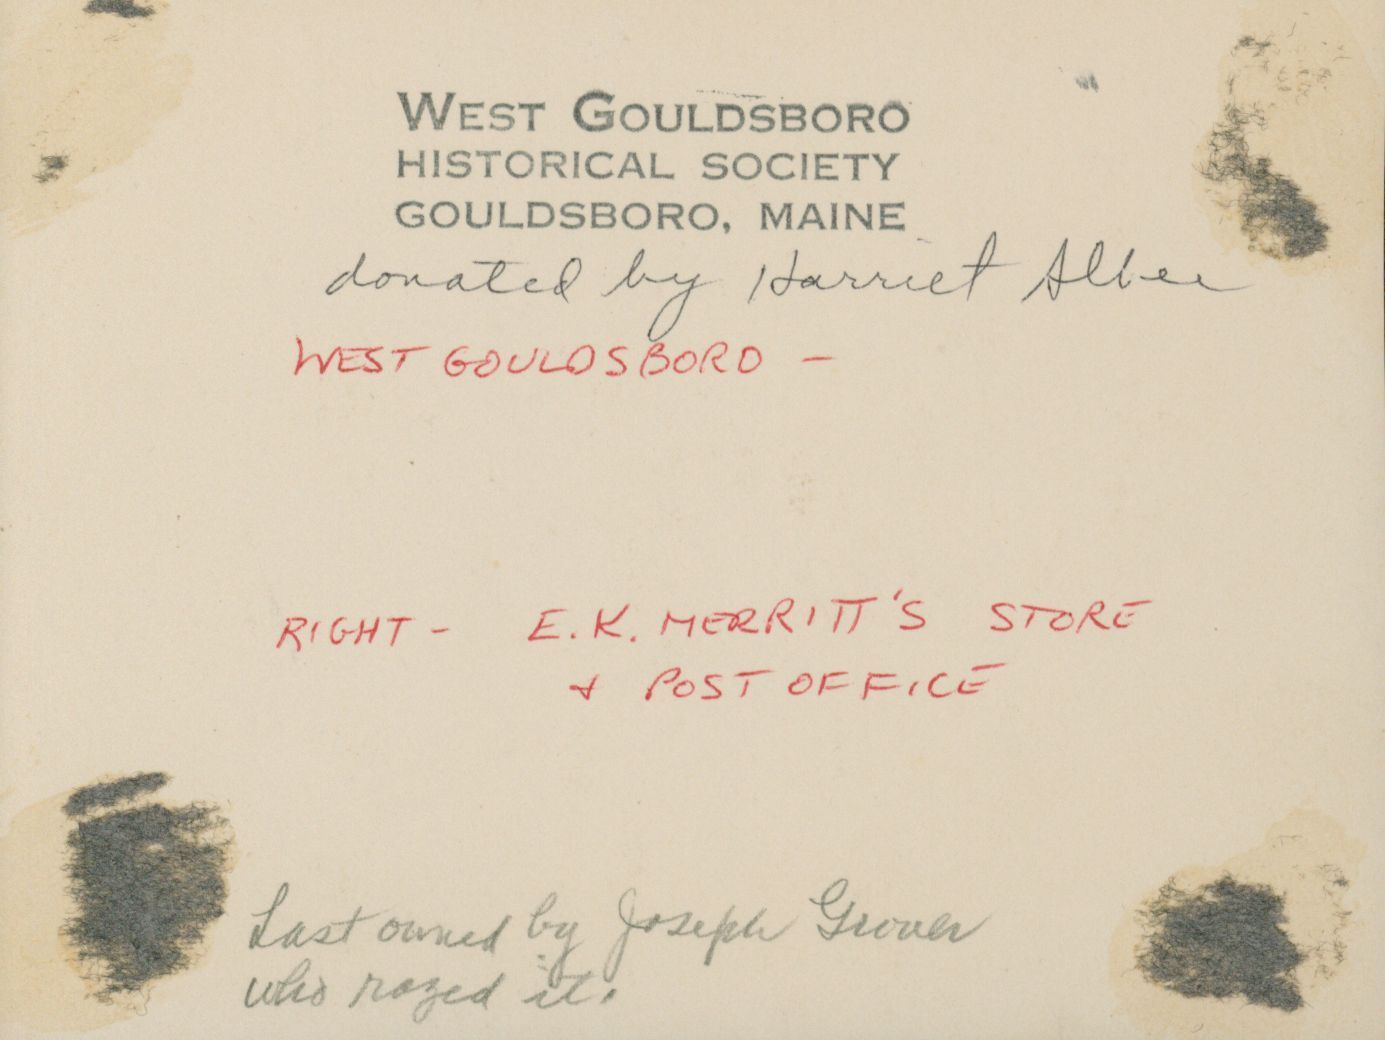 WEST GOULDSBORO
HISTORICAL SOCIETY
GOULDSBORO, MAINE
donated by Harriet Albee
WEST GOULDSBORO –
RIGHT – E.K. MERRITT'S STORE
+ POST OFFICE
Last owned by Joseph Grover
who razed it.